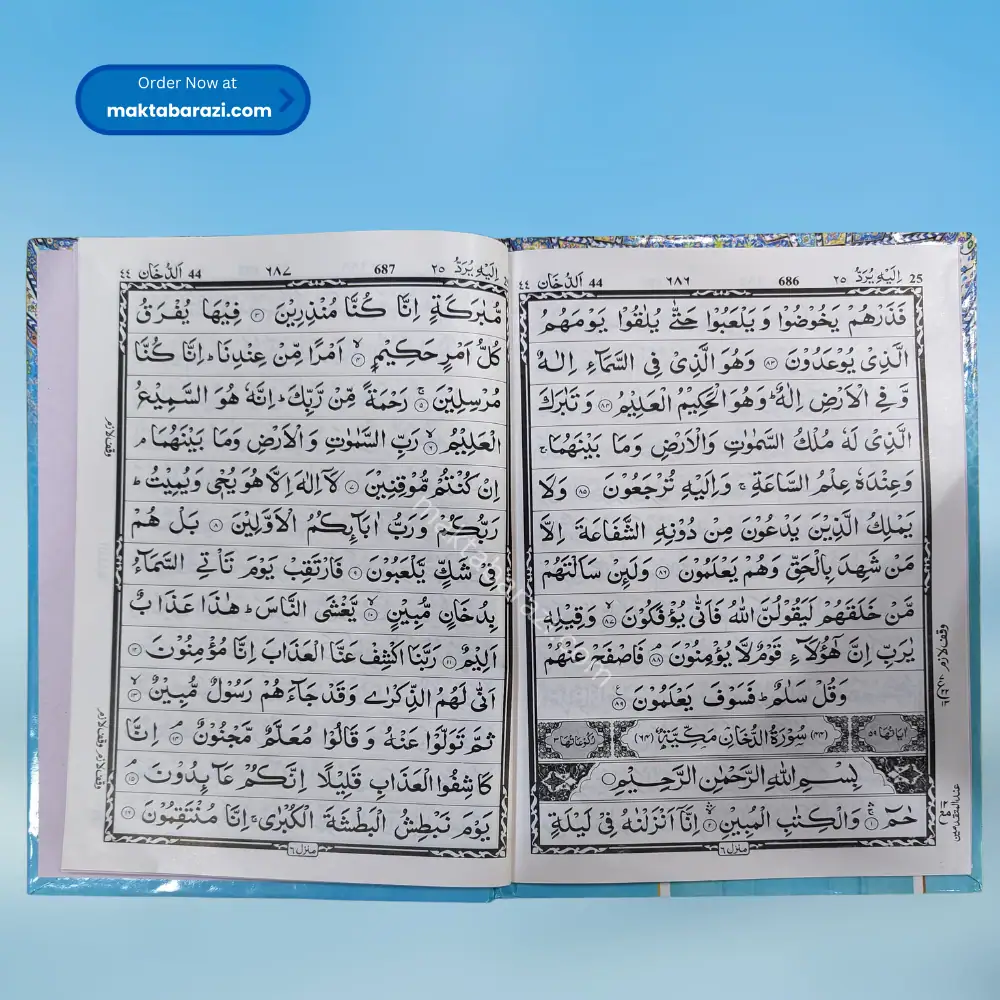 Order Now at
maktabarazi.com
25 اِلَيْهِ يُرَدُّ ٢٥ 686 ٦٨٦ 44 اَلدُّخَان ٤٤
فَذَرْهُمْ يَخُوْضُوْا وَ يَلْعَبُوْا حَتّٰى يُلٰقُوْا يَوْمَهُمُ
الَّذِيْ يُوْعَدُوْنَ ﴿٨٣﴾ وَهُوَ الَّذِيْ فِي السَّمَآءِ اِلٰهٌ
وَّفِي الْاَرْضِ اِلٰهٌ ؕ وَهُوَ الْحَكِيْمُ الْعَلِيْمُ ﴿٨٤﴾ وَ تَبٰرَكَ
الَّذِيْ لَهٗ مُلْكُ السَّمٰوٰتِ وَالْاَرْضِ وَمَا بَيْنَهُمَا ۚ
وَعِنْدَهٗ عِلْمُ السَّاعَةِ ۚ وَاِلَيْهِ تُرْجَعُوْنَ ﴿٨٥﴾ وَلَا
يَمْلِكُ الَّذِيْنَ يَدْعُوْنَ مِنْ دُوْنِهِ الشَّفَاعَةَ اِلَّا
مَنْ شَهِدَ بِالْحَقِّ وَهُمْ يَعْلَمُوْنَ ﴿٨٦﴾ وَلَئِنْ سَاَلْتَهُمْ
مَّنْ خَلَقَهُمْ لَيَقُوْلُنَّ اللّٰهُ فَاَنّٰى يُؤْفَكُوْنَ ﴿٨٧﴾ وَقِيْلِهٖ
يٰرَبِّ اِنَّ هٰٓؤُلَآءِ قَوْمٌ لَّا يُؤْمِنُوْنَ ﴿٨٨﴾ فَاصْفَحْ عَنْهُمْ
وَقُلْ سَلٰمٌ ؕ فَسَوْفَ يَعْلَمُوْنَ ﴿٨٩﴾
اٰيَاتُهَا ٥٩ ﴿٤٤﴾ سُوْرَةُ الدُّخَانِ مَكِّيَّةٌ ﴿٦٤﴾ رُكُوْعَاتُهَا ٣
بِسْمِ اللّٰهِ الرَّحْمٰنِ الرَّحِيْمِ
حٰمٓ ﴿١﴾ وَالْكِتٰبِ الْمُبِيْنِ ﴿٢﴾ اِنَّآ اَنْزَلْنٰهُ فِيْ لَيْلَةٍ
منزل ٦
وقف لازم
اِلَيْهِ يُرَدُّ ٢٥ 687 ٦٨٧ 44 اَلدُّخَان ٤٤
مُّبٰرَكَةٍ اِنَّا كُنَّا مُنْذِرِيْنَ ﴿٣﴾ فِيْهَا يُفْرَقُ
كُلُّ اَمْرٍ حَكِيْمٍ ﴿٤﴾ اَمْرًا مِّنْ عِنْدِنَا ؕ اِنَّا كُنَّا
مُرْسِلِيْنَ ﴿٥﴾ رَحْمَةً مِّنْ رَّبِّكَ ؕ اِنَّهٗ هُوَ السَّمِيْعُ
الْعَلِيْمُ ﴿٦﴾ رَبِّ السَّمٰوٰتِ وَ الْاَرْضِ وَمَا بَيْنَهُمَا ۘ
اِنْ كُنْتُمْ مُّوْقِنِيْنَ ﴿٧﴾ لَآ اِلٰهَ اِلَّا هُوَ يُحْيٖ وَيُمِيْتُ ؕ
رَبُّكُمْ وَ رَبُّ اٰبَآئِكُمُ الْاَوَّلِيْنَ ﴿٨﴾ بَلْ هُمْ
فِيْ شَكٍّ يَّلْعَبُوْنَ ﴿٩﴾ فَارْتَقِبْ يَوْمَ تَاْتِي السَّمَآءُ
بِدُخَانٍ مُّبِيْنٍ ﴿١٠﴾ يَّغْشَى النَّاسَ ؕ هٰذَا عَذَابٌ
اَلِيْمٌ ﴿١١﴾ رَبَّنَا اكْشِفْ عَنَّا الْعَذَابَ اِنَّا مُؤْمِنُوْنَ ﴿١٢﴾
اَنّٰى لَهُمُ الذِّكْرٰى وَقَدْ جَآءَهُمْ رَسُوْلٌ مُّبِيْنٌ ﴿١٣﴾
ثُمَّ تَوَلَّوْا عَنْهُ وَ قَالُوْا مُعَلَّمٌ مَّجْنُوْنٌ ﴿١٤﴾ اِنَّا
كَاشِفُوا الْعَذَابِ قَلِيْلًا اِنَّكُمْ عَآئِدُوْنَ ﴿١٥﴾
يَوْمَ نَبْطِشُ الْبَطْشَةَ الْكُبْرٰى ۚ اِنَّا مُنْتَقِمُوْنَ ﴿١٦﴾
منزل ٦
وقف لازم
وقف لازم وقف لازم
maktabarazi.com